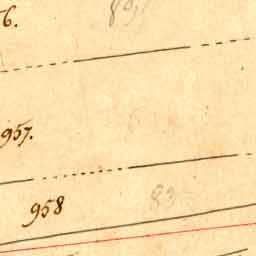 6.
957.
958
83